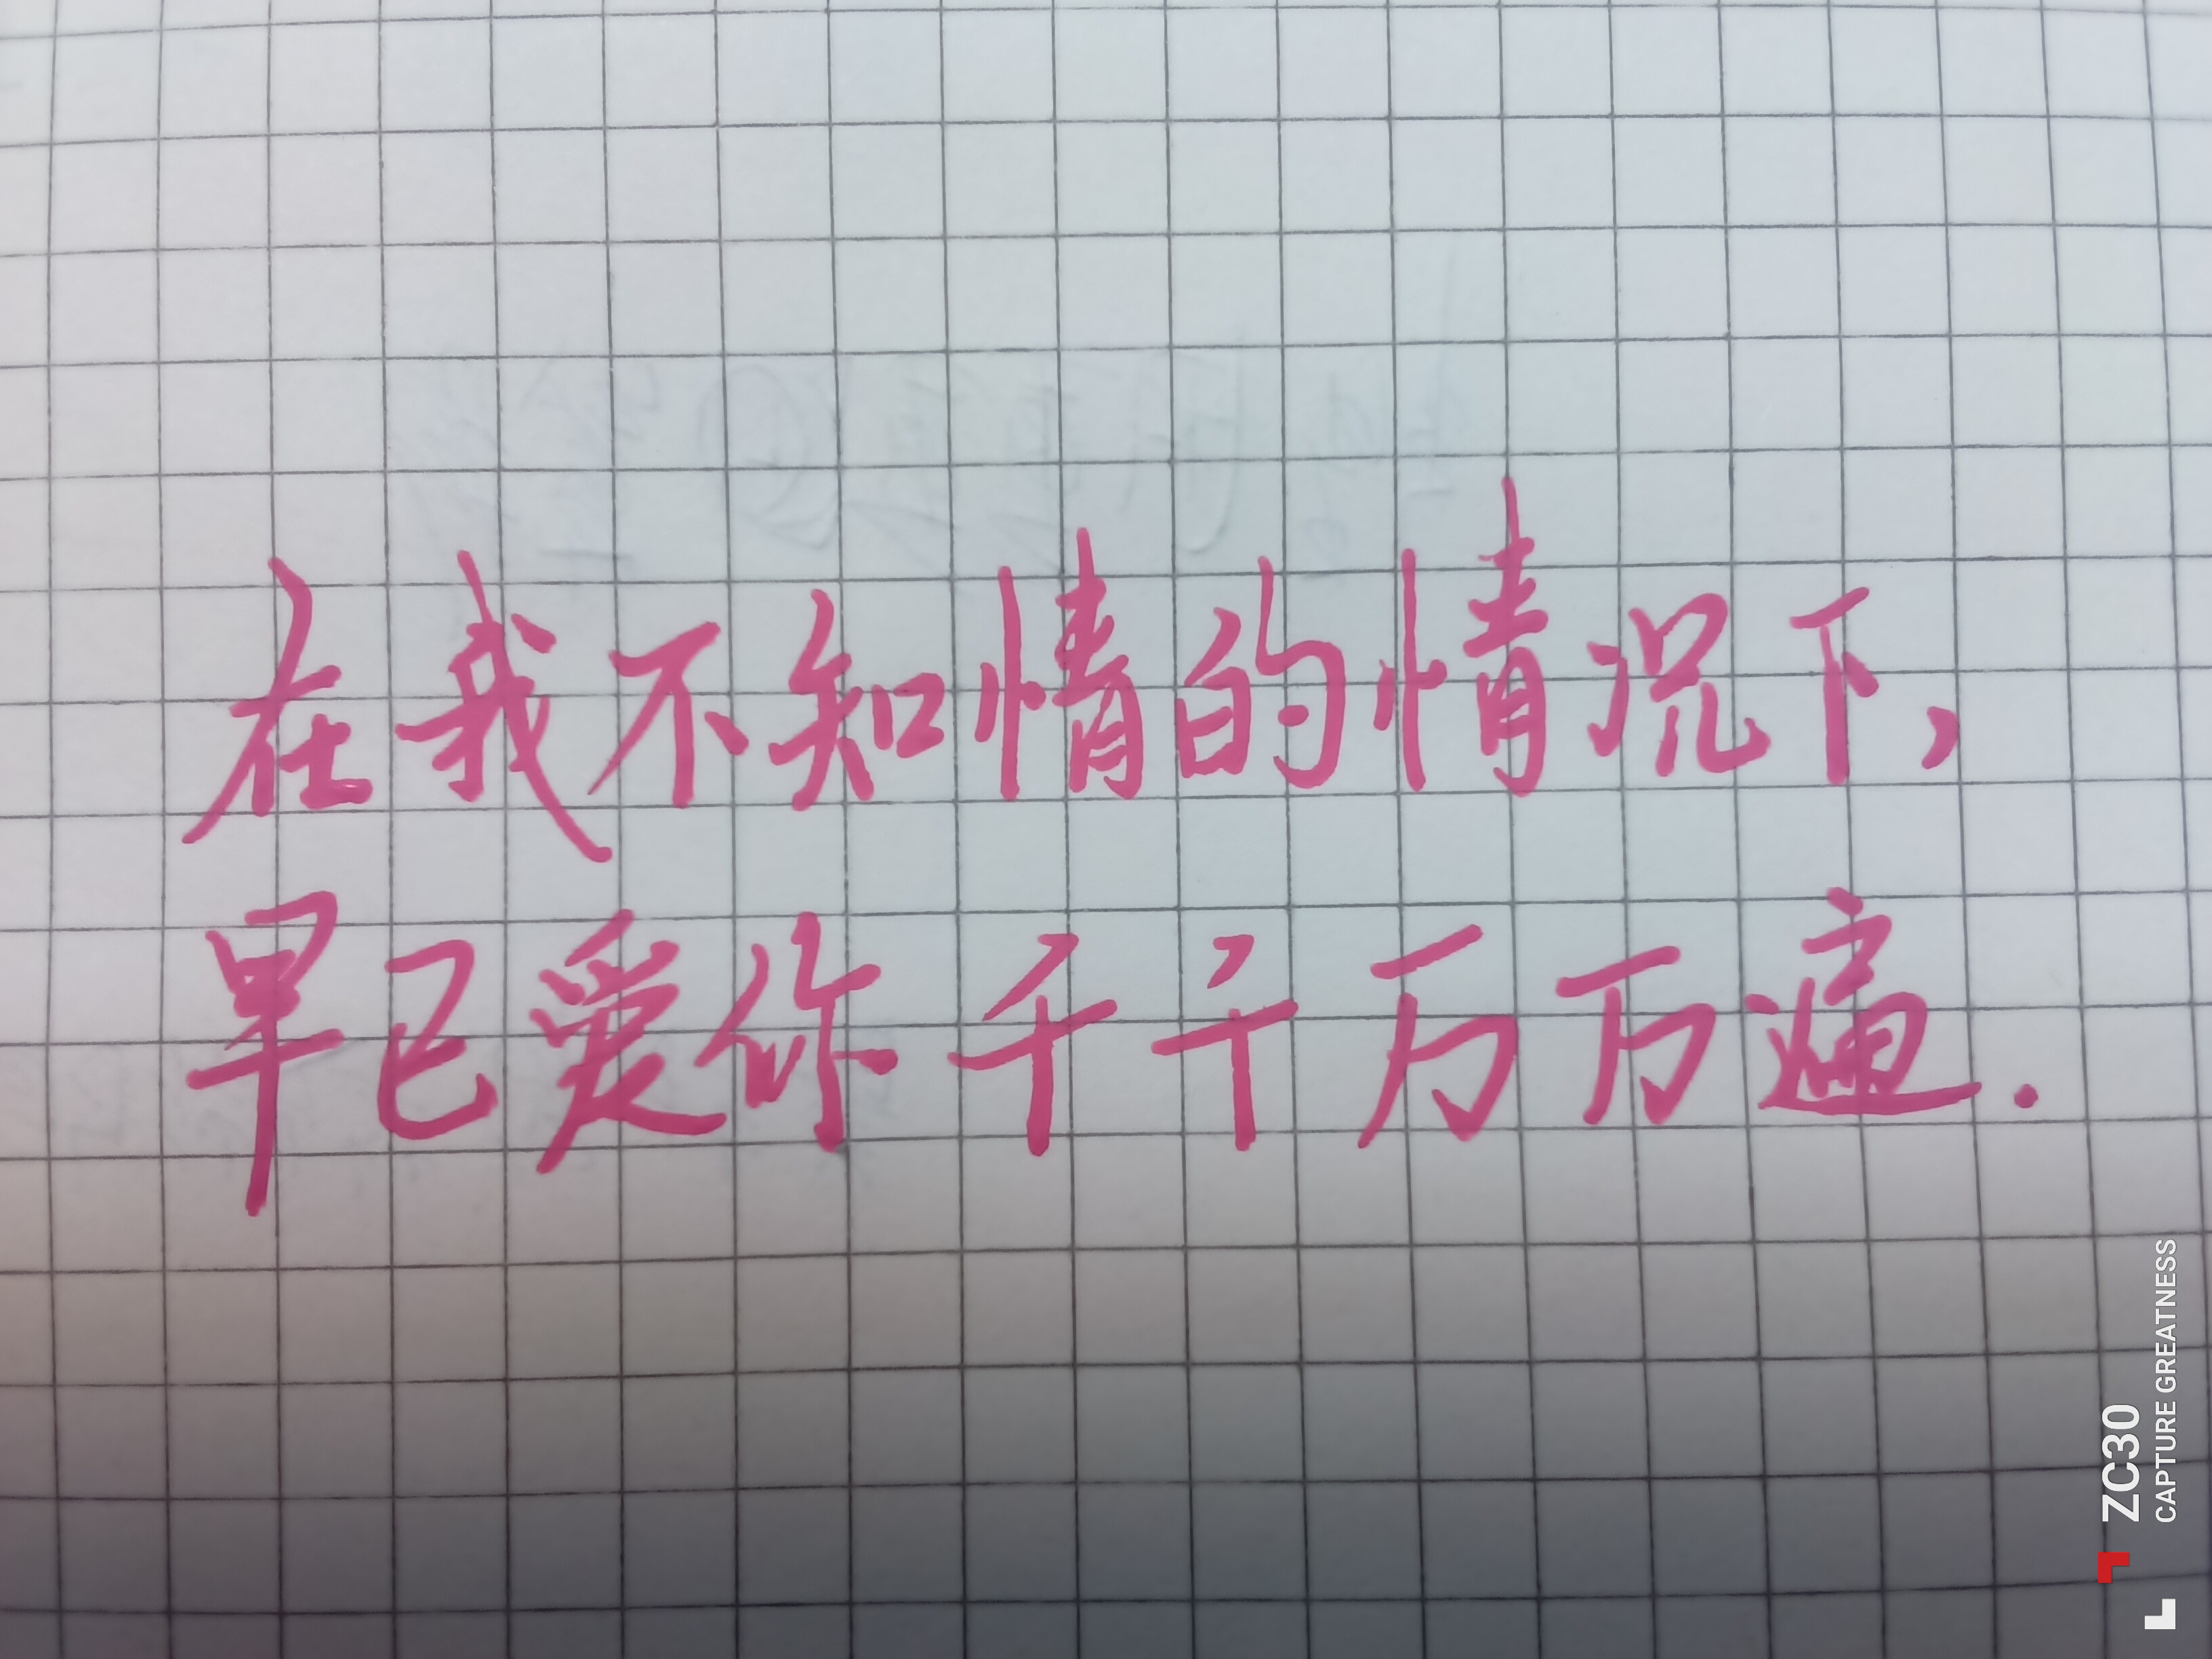 在我不知情的情况下,
早已爱你千千万万遍.
ZC30
CAPTURE GREATNESS